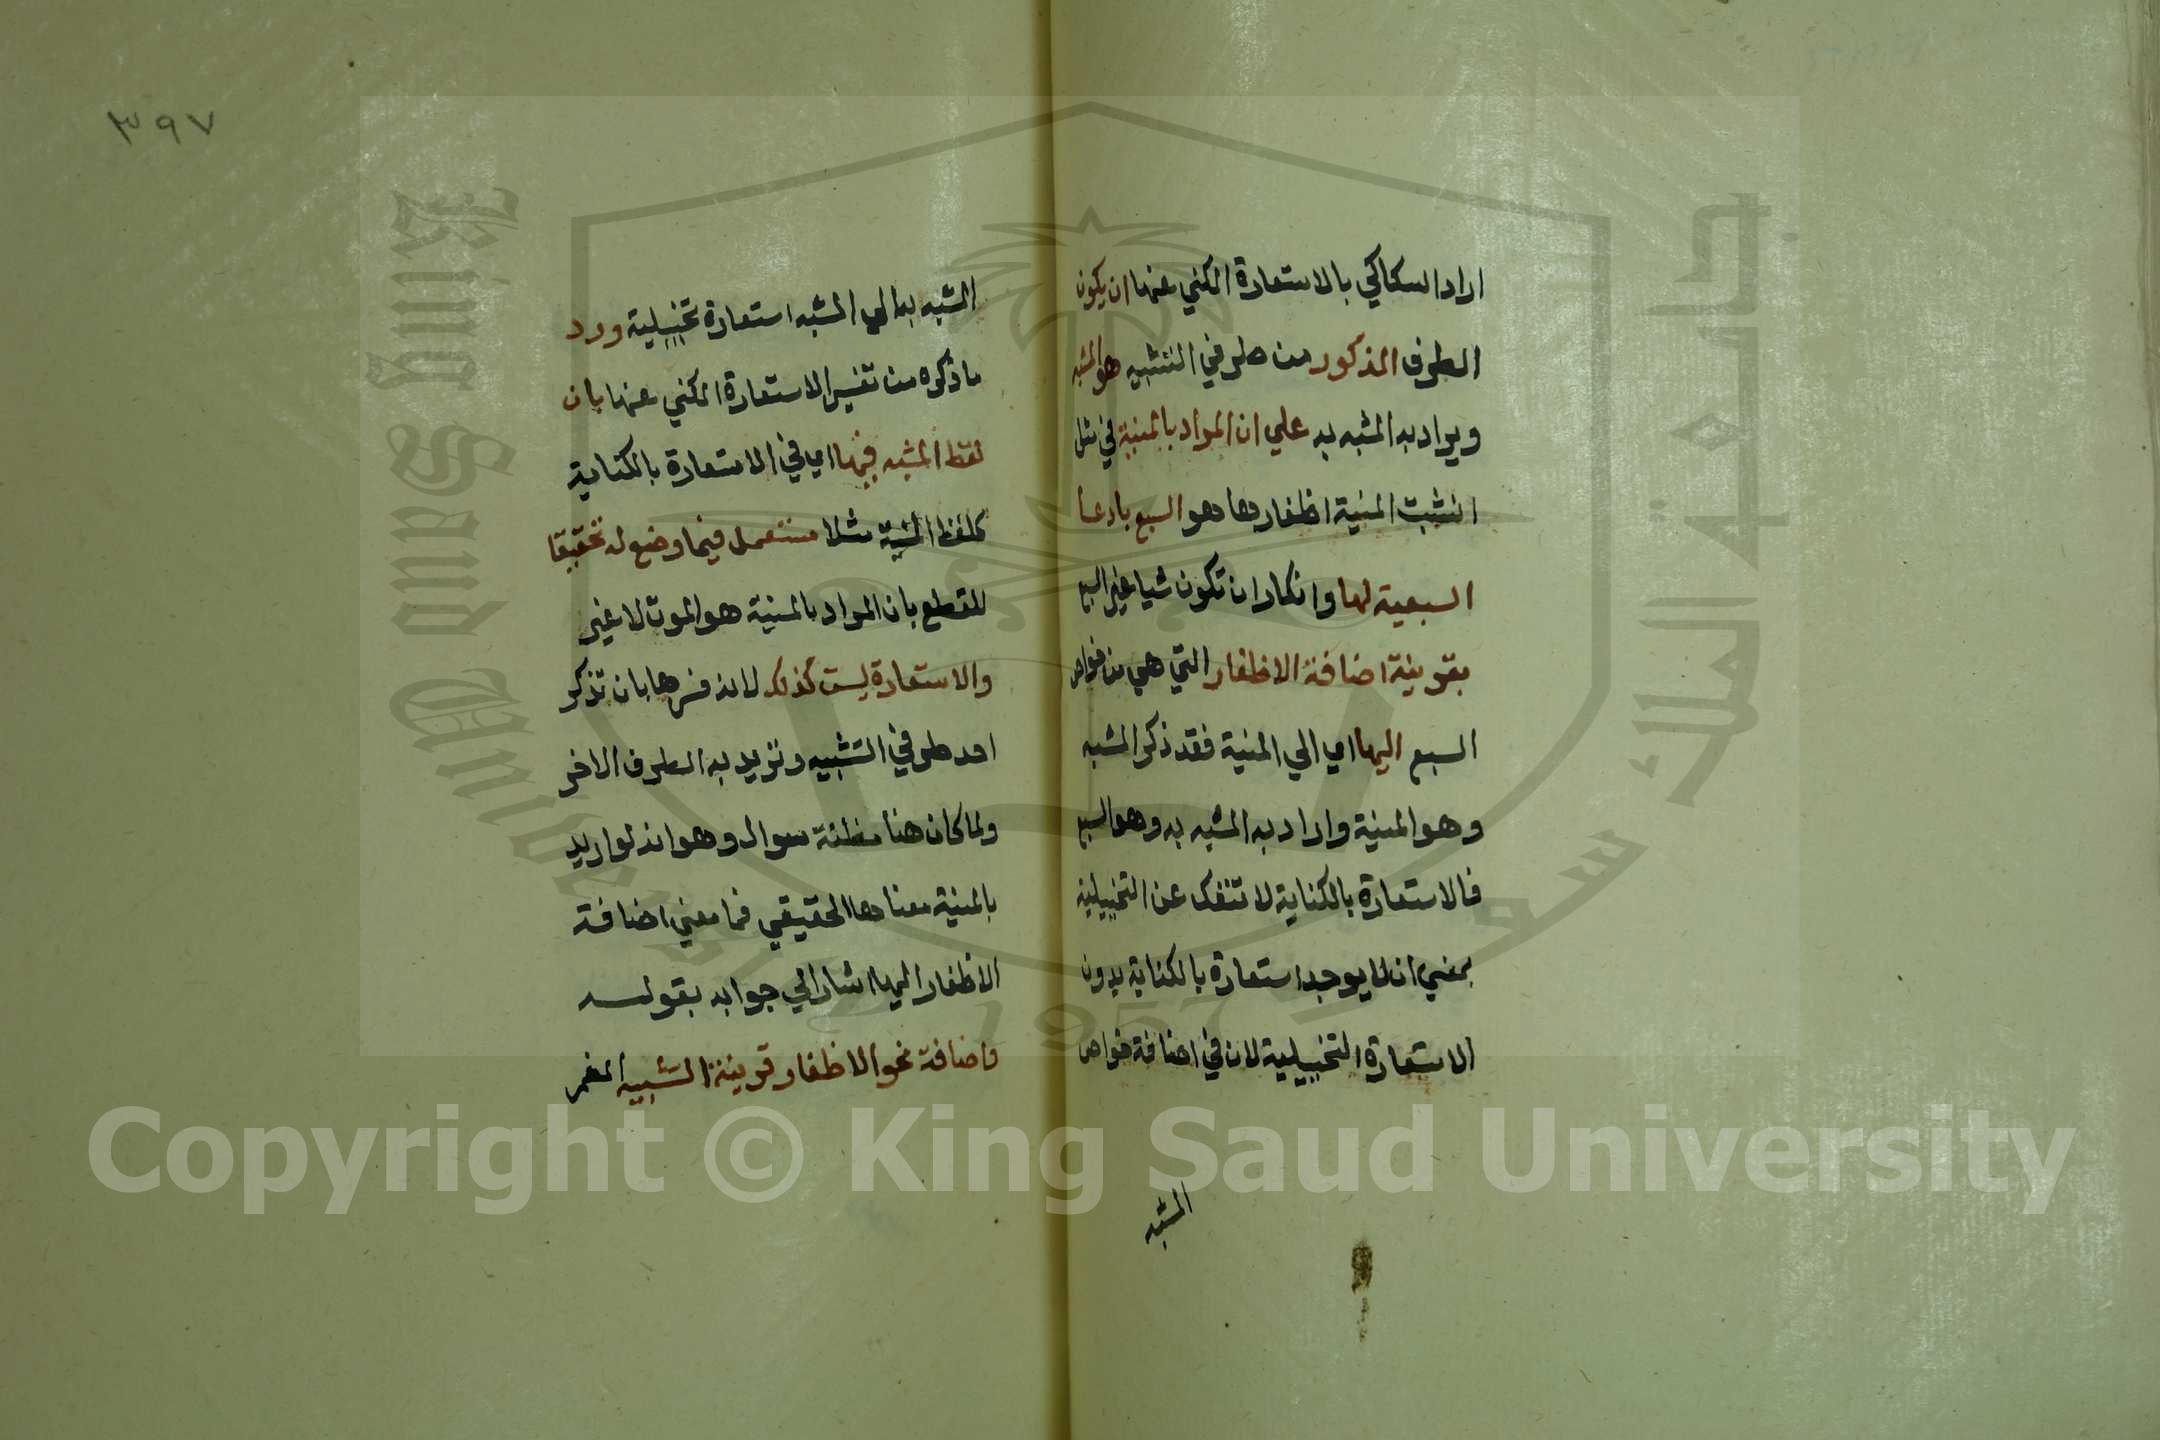 اراد السكاكي بالاستعارة المكني عنها ان يكون
الطرف المذكور من طرفي التشبيه هو المشبه
ويراد به المشبه به علي ان المراد بالمنية في مثل
انشبت المنية اظفارها هو السبع بادعا
السبعية لها وانكار ان تكون شيا غير السبع
بقرينة اضافة الاظفار التي هي من خواص
السبع اليها اي الي المنية فقد ذكر المشبه
وهو المنية واراد به المشبه به وهو السبع
فالاستعارة بالكناية لا تنفك عن التخييلية
بمعني انه لا يوجد استعارة بالكناية بدون
الاستعارة التخييلية لان في اضافة خواص
المشبه
٣٩٧
المشبه به الي المشبه استعارة تخييلية ورد
ما ذكره من تفسير الاستعارة المكني عنها بان
لفظ المشبه فيها اي في الاستعارة بالكناية
كلفظ المنية مثلا مستعمل فيما وضع له تحقيقا
للقطع بان المراد بالمنية هو الموت لا غير
والاستعارة ليست كذلك لانه فسرها بان تذكر
احد طرفي التشبيه وتريد به الطرف الاخر
ولما كان هنا مظنة سوال وهو انه لو اريد
بالمنية معناها الحقيقي فما معني اضافة
الاظفار اليها اشار الي جوابه بقوله
واضافة نحو الاظفار قرينة التشبيه المضمر
King Saud University
جامعة الملك سعود
1957
Copyright © King Saud University